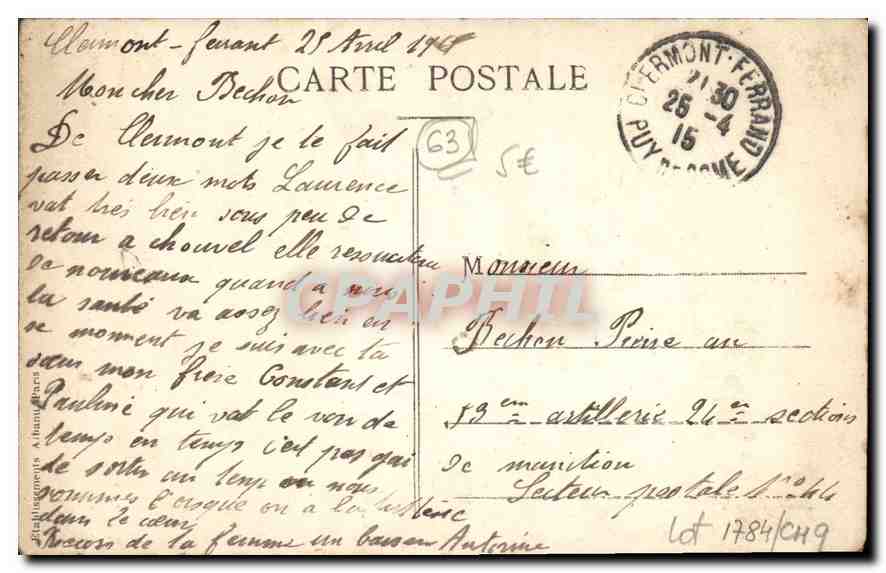 Clermont-ferrant 25 Avril 1915
CARTE POSTALE
Mon cher Bechon
De Clermont je te fait
passer deux mots Laurence
vat très bien sous peu de
retour a chouvel elle
de nouveaux quand a nous
la santé va assez bien en
se moment je suis avec ta
sœur mon frere Constant et
Pauline qui vat le voir de
temps en temps c'est pas gai
de sortir un temp ou nous
sommes l'orsque on a la
dans le cœur
de la femme un baiser Antoine
CLERMONT-FERRAND
21 30
26 -4
15
PUY DE DOME
63
5€
Monsieur
Bechon Pierre au
53em artillerie 24em sections
de munition
Secteur postale No 44
Lot 1784/CH9
CPAPHIL
Etablissements Albanus Paris